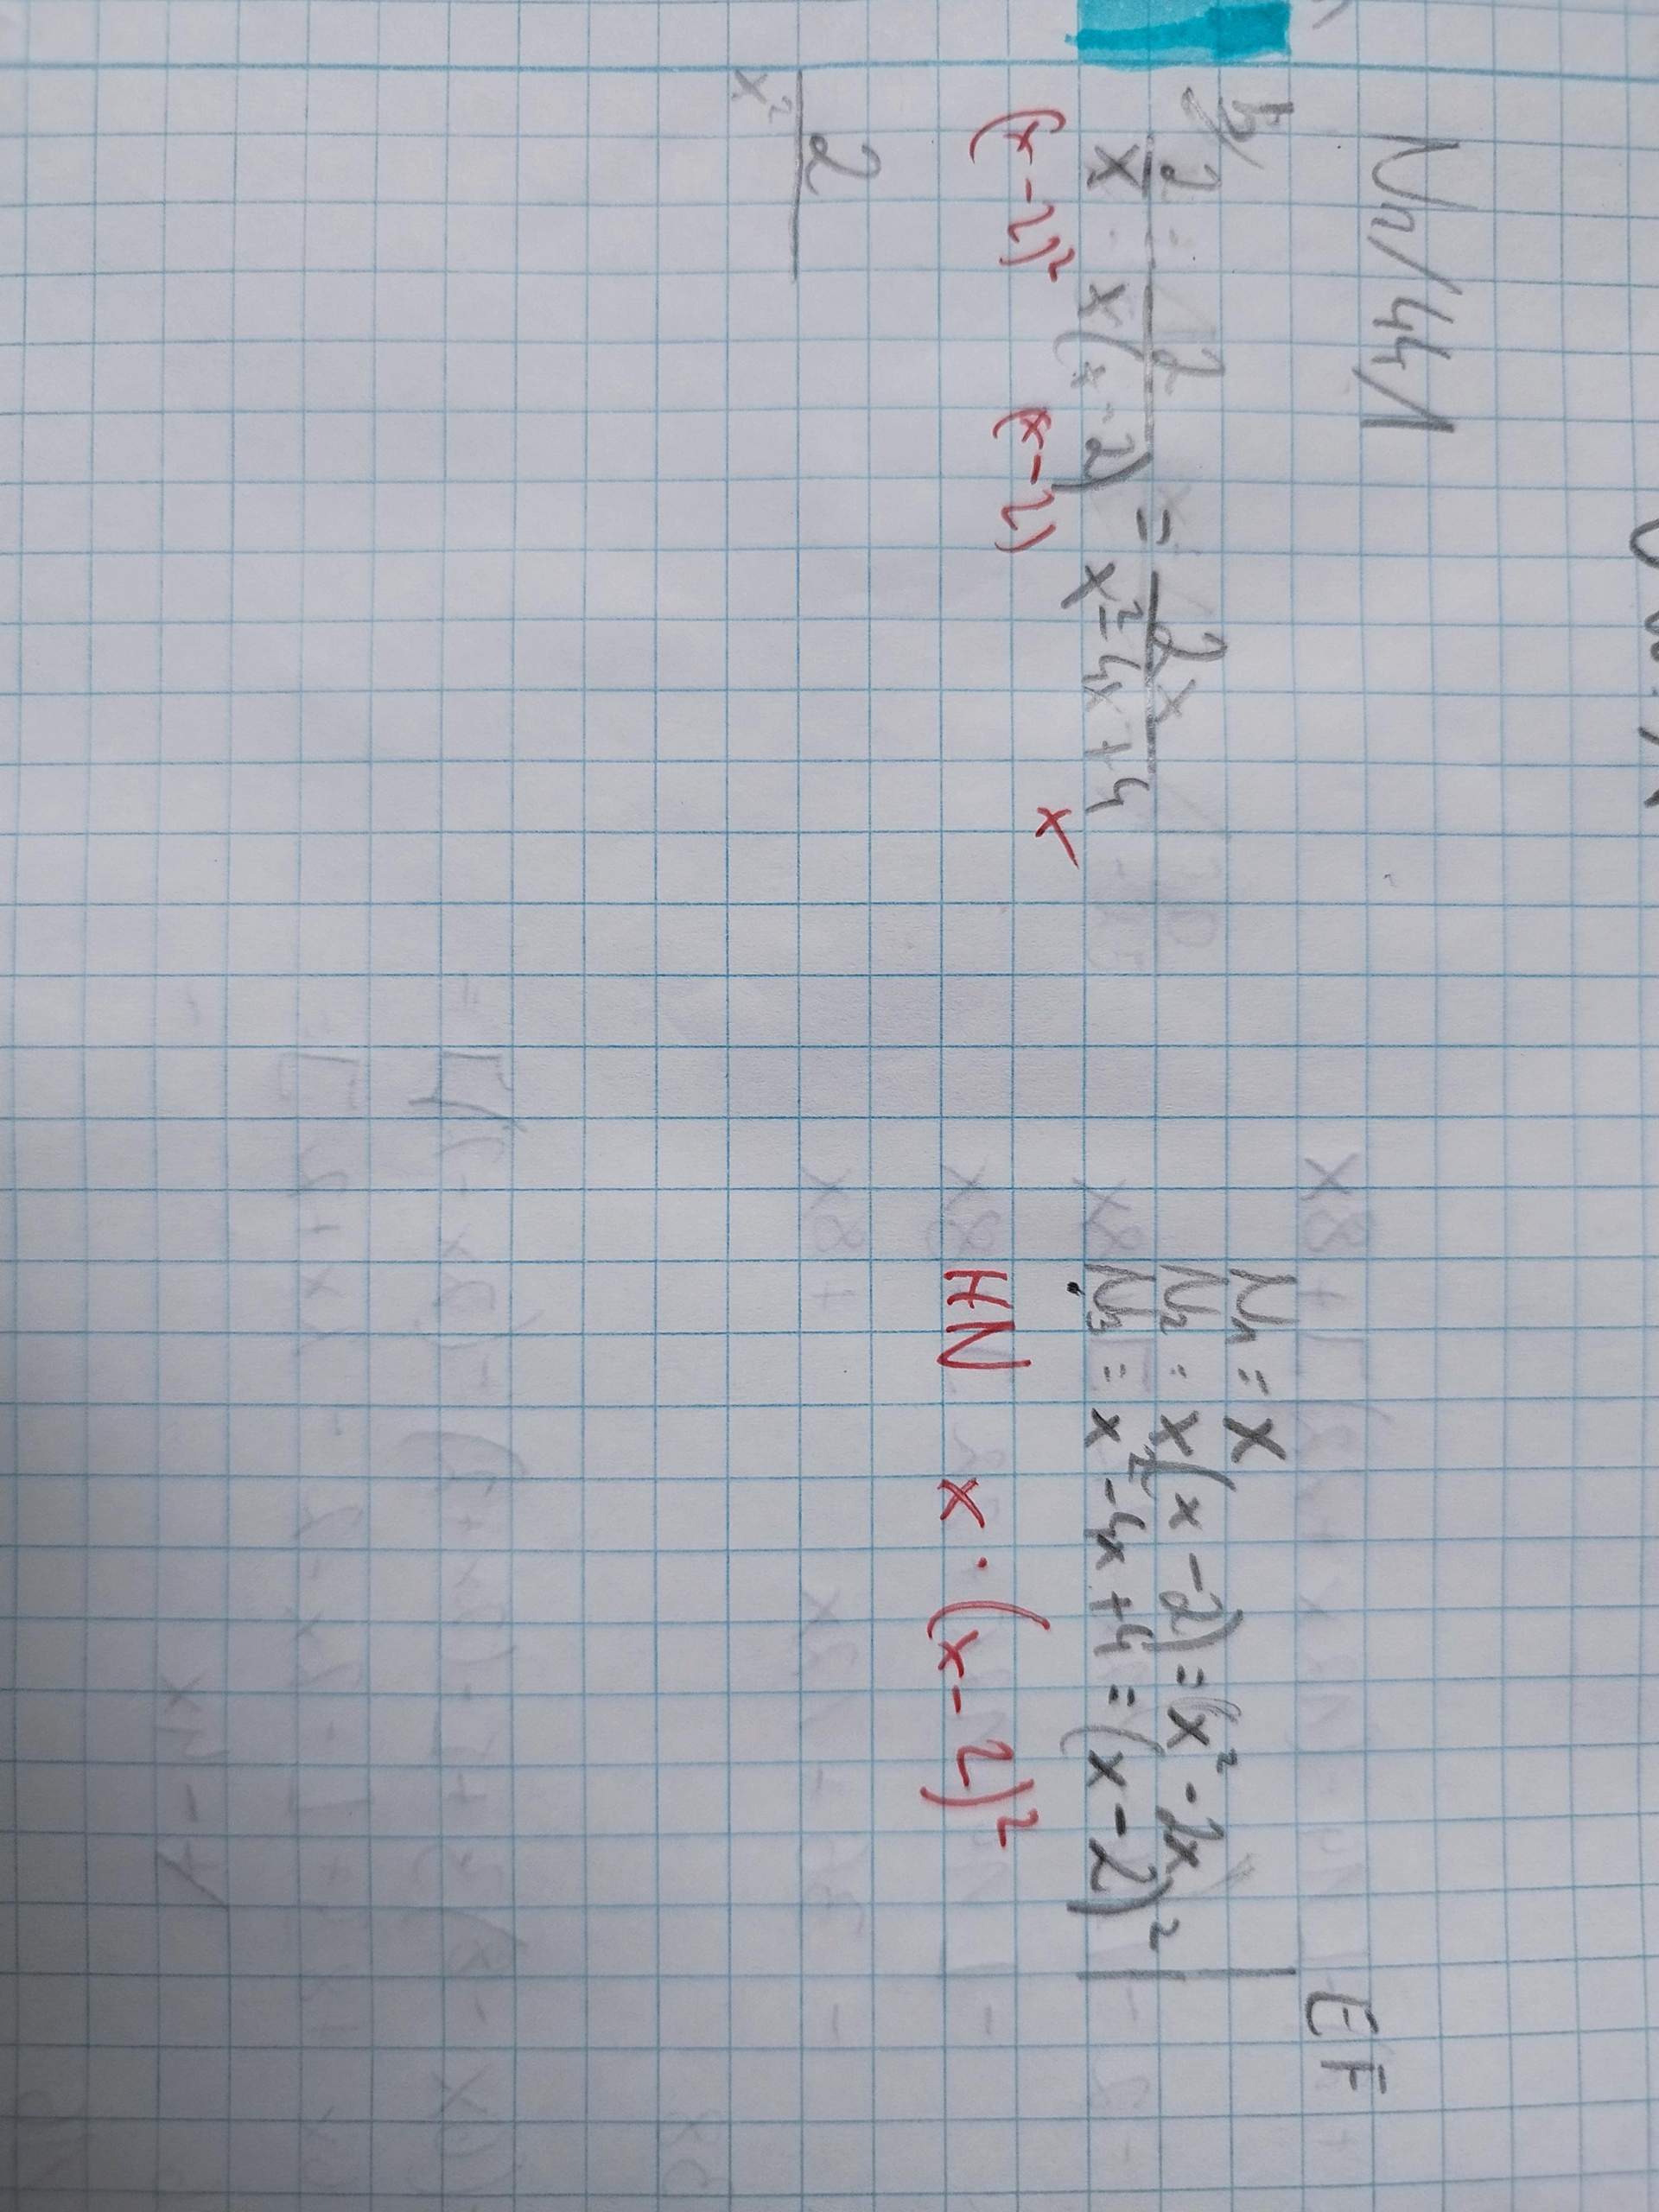 Nr/441
b/ 2/x - 2/x(x-2) = 2x/x²-4x+4
(x-2)² (x-2) x
2/x²
EF
N₁ = x
N₂ = x(x-2) = (x²-2x)
N₃ = x²-4x+4 = (x-2)²
HN x·(x-2)²